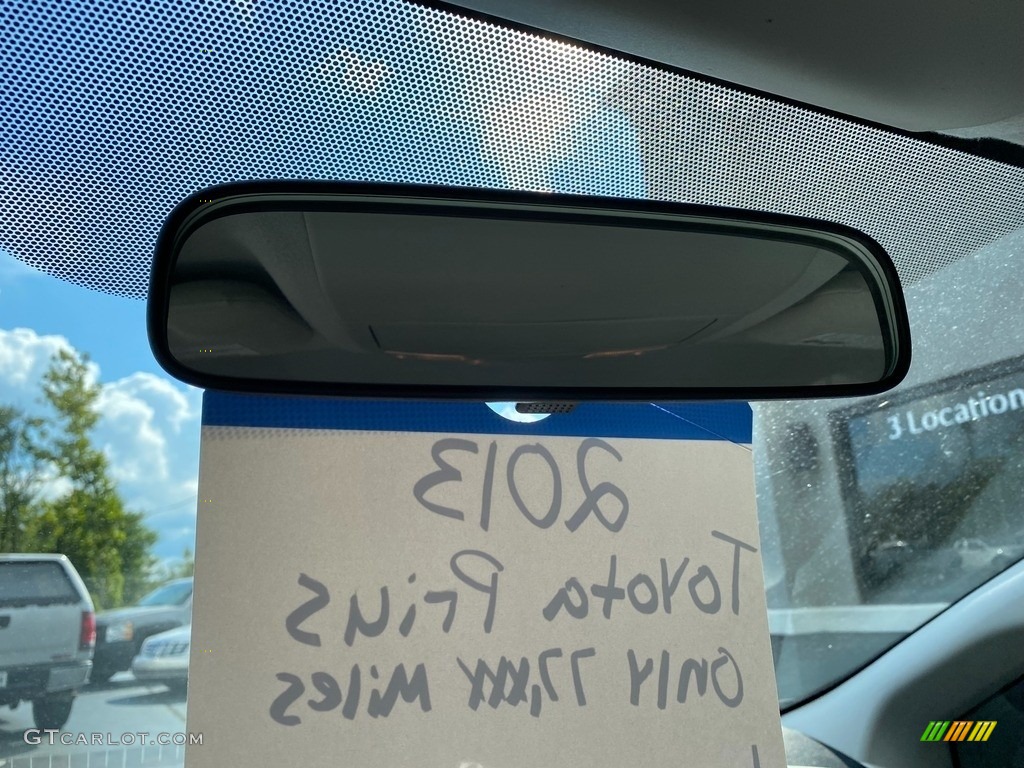 3 Location
2013
Toyota Prius
Only 77,xxx Miles
GTCARLOT.COM